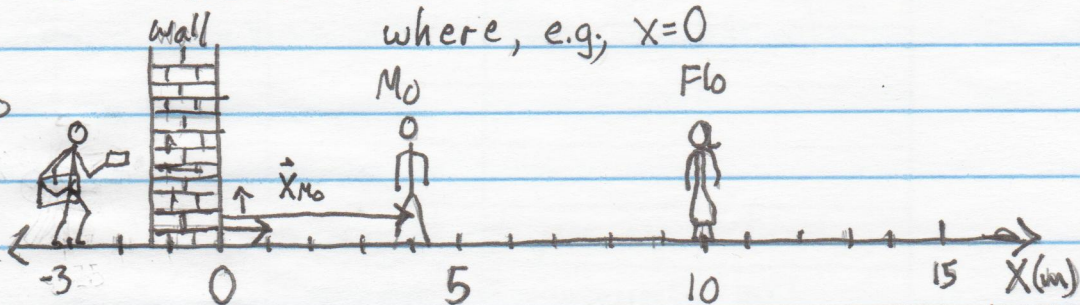 wall where, e.g., x=0
Mo Flo
x⃗Mo
-3 0 5 10 15 X(m)